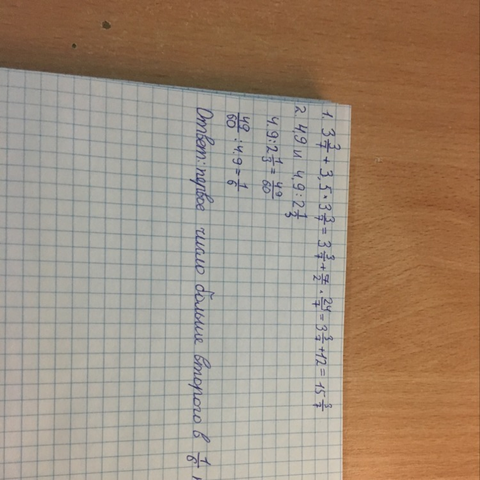 1. 3 3/7 + 3,5 · 3 3/7 = 3 3/7 + 7/2 · 24/7 = 3 3/7 + 12 = 15 3/7
2. 4,9 и 4,9 : 2 1/3
4,9 : 2 1/3 = 49/60
49/60 : 4,9 = 1/6
Ответ: первое число больше второго в 1/6